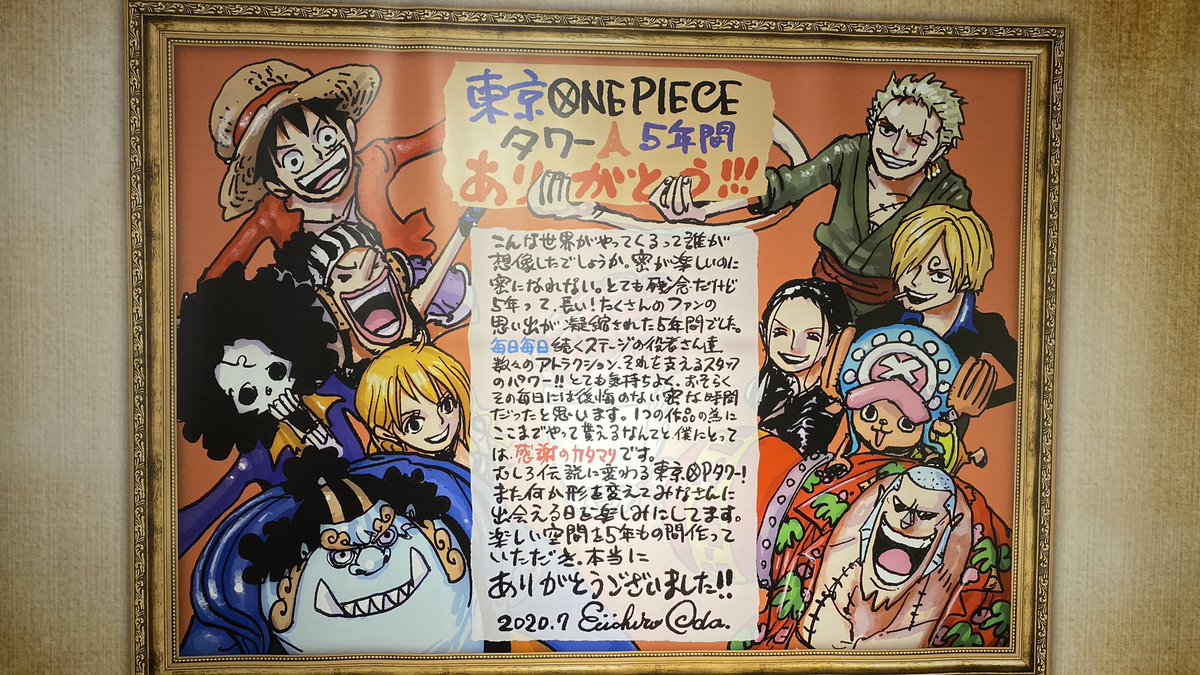 東京ONE PIECE
タワー 5年間
ありがとう!!!
こんな世界がやってくるって誰が
想像したでしょうか。密が楽しいのに
密になれない。とても残念だけど
5年って、長い!たくさんのファンの
思い出が凝縮された5年間でした。
毎日毎日続くステージの役者さん達
数々のアトラクション、それを支えるスタッフ
のパワー!!とても気持ちよく、おそらく
その毎日には後悔のない密な時間
だったと思います。1つの作品の為に
ここまでやって貰えるなんてと僕にとって
は、感謝のカタマリです。
むしろ伝説に変わる東京OPタワー!
また何か形を変えてみなさんに
出会える日を楽しみにしてます。
楽しい空間を5年もの間作って
いただき、本当に
ありがとうございました!!
2020.7 Eiichiro Oda.